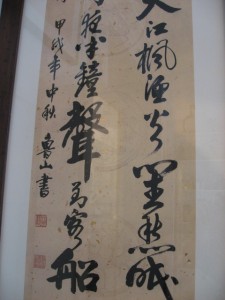 天江楓漁火對愁眠
夜半鐘聲到客船
甲戌年中秋 魯山書